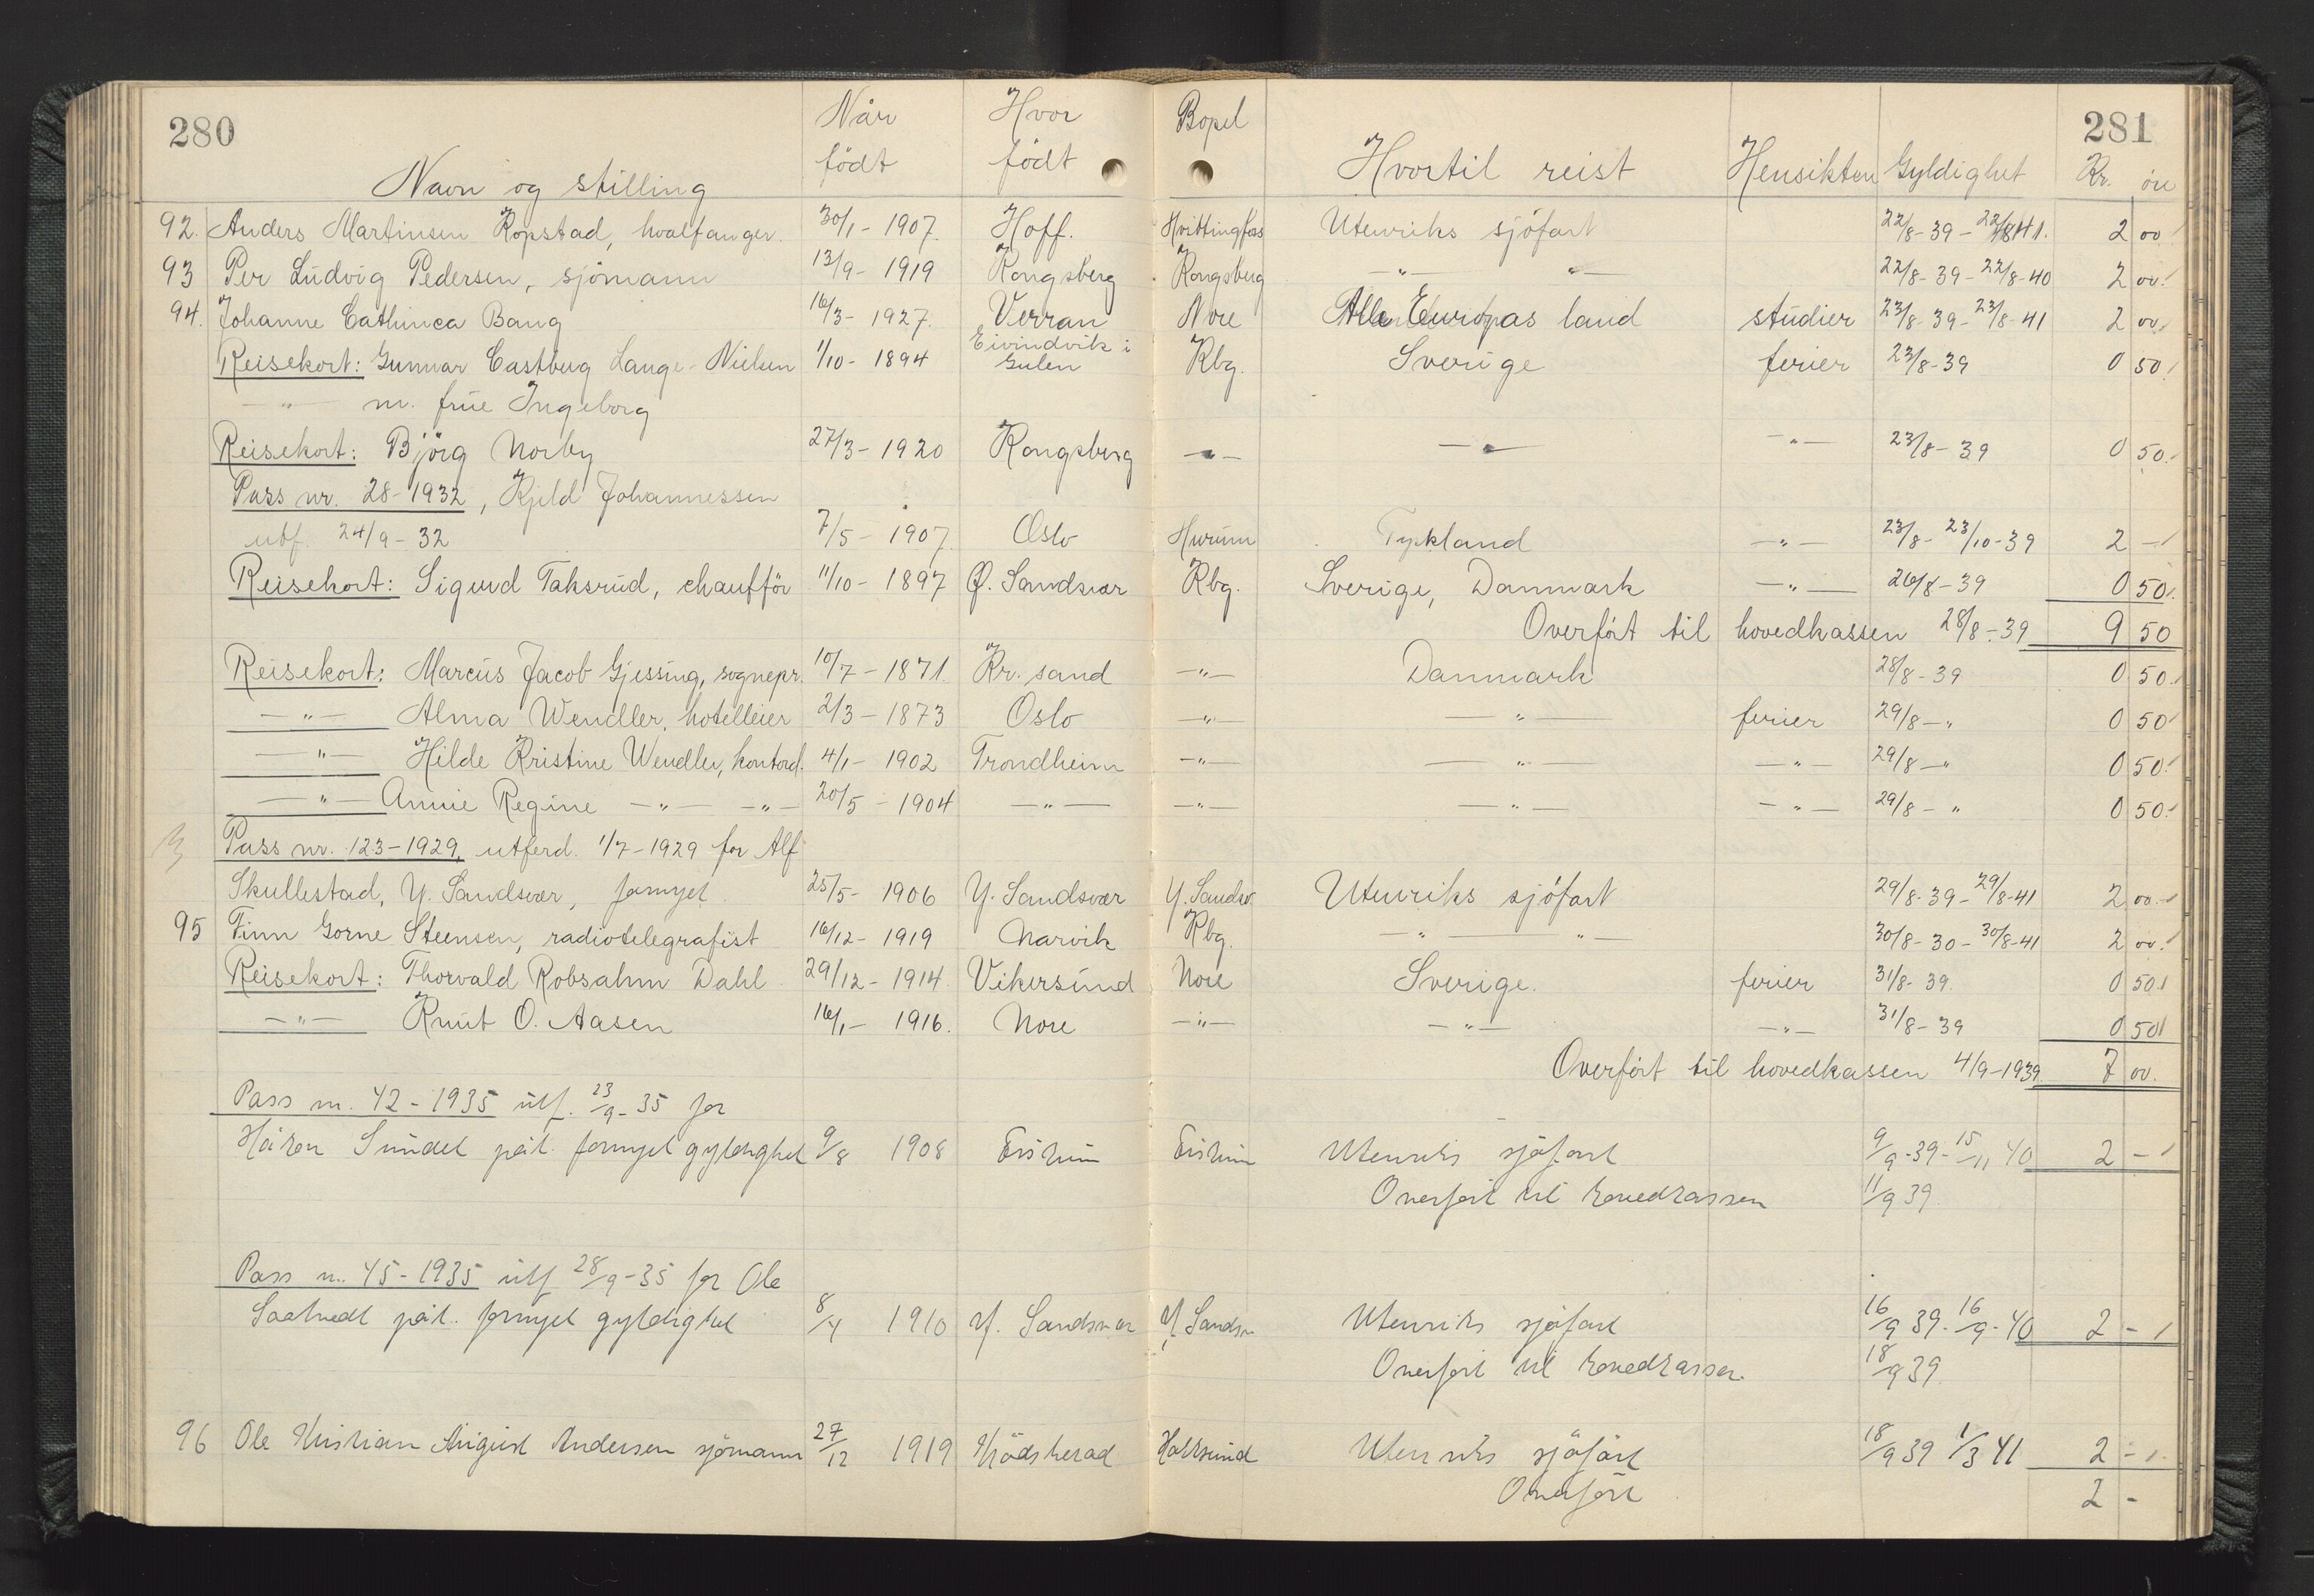 280 281
Når Hvor Bopel
født født
Navn og stilling Hvortil reist Hensikten Gyldighet Kr. öre
92. Anders Martinsen Kopstad, hvalfanger. 30/1- 1907. Hoff. Hvittingfoss Utenriks sjöfart 22/8-39- 22/8 41. 2 00
93 Per Ludvig Pedersen, sjömann 13/9- 1919 Kongsberg Kongsberg —"— "— 22/8-39-22/8-40 2 00
94. Johanne Cathinca Bang 16/3- 1927. Verran Nore Alle Europas land studier 23/8-39-23/8-41 2 00
Reisekort: Gunnar Castberg Lange-Nielsen 1/10- 1894 Eivindvik i Gulen Kbg. Sverige ferier 23/8-39 0 50
—"— m. frue Ingeborg
Reisekort: Björg Norby 27/3- 1920 Kongsberg —"— —"— —"— 23/8-39 0 50
Pass nr. 28-1932, Kjeld Johannessen
utf. 24/9-32 7/5- 1907. Oslo Hurum Tyskland —"— 23/8-23/10-39 2 —
Reisekort: Sigurd Taksrud, chaufför 11/10- 1897 Ö. Sandsvær Kbg. Sverige, Danmark —"— 26/8-39 0 50
Overfört til hovedkassen 28/8-39 9 50
Reisekort: Marcus Jacob Gjessing, sognepr. 10/7- 1871. Kr. sand —"— Danmark 28/8-39 0 50
—"— Alma Wendler, hotelleier 2/3- 1873 Oslo —"— —"— ferier 29/8-" 0 50
—"— Hilde Kristine Wendler, kontord. 4/1- 1902 Trondheim —"— —"— —"— 29/8-" 0 50
—"— Annie Regine —"— —"— 20/5- 1904 —"— —"— —"— —"— 29/8-" 0 50
Pass nr. 123-1929, utferd. 1/7-1929 for Alf
Skullestad, Y. Sandsvær, fornyet 25/5- 1906 Y. Sandsvær Y. Sandsv. Utenriks sjöfart 29/8-39-29/8-41 2 00
95 Finn Gorne Steensen, radiotelegrafist 16/12- 1919 Narvik Kbg. —"— —"— 30/8-30-30/8-41 2 00
Reisekort: Thorvald Robsahm Dahl 29/12- 1914 Vikersund Nore Sverige. ferier 31/8-39. 0 50
—"— Knut O. Aasen 16/1- 1916. Nore —"— —"— —"— 31/8-39 0 50
Overfört til hovedkassen 4/9-1939 7 00.
Pass nr. 42-1935 utf. 23/9-35 for
Håkon Sundet påt. fornyet gyldighet 9/8 1908 Eiker
Utenriks sjöfart 9/9-39-15/11 40 2 —
Overfört til hovedkassen 11/9 39
Pass nr. 45-1935 utf 28/9-35 for Ole
Saatvedt påt. fornyet gyldighet 8/4 1910 Y. Sandsvær Y. Sandsv. Utenriks sjöfart 16/9 39-16/9-40 2 —
Overfört til hovedkassen. 18/9 39
96 Ole Kristian August Andersen sjömann 27/12 1919 Krödsherad Hokksund Utenriks sjöfart 18/9 39 1/3 41 2 —
Overfört 2 -